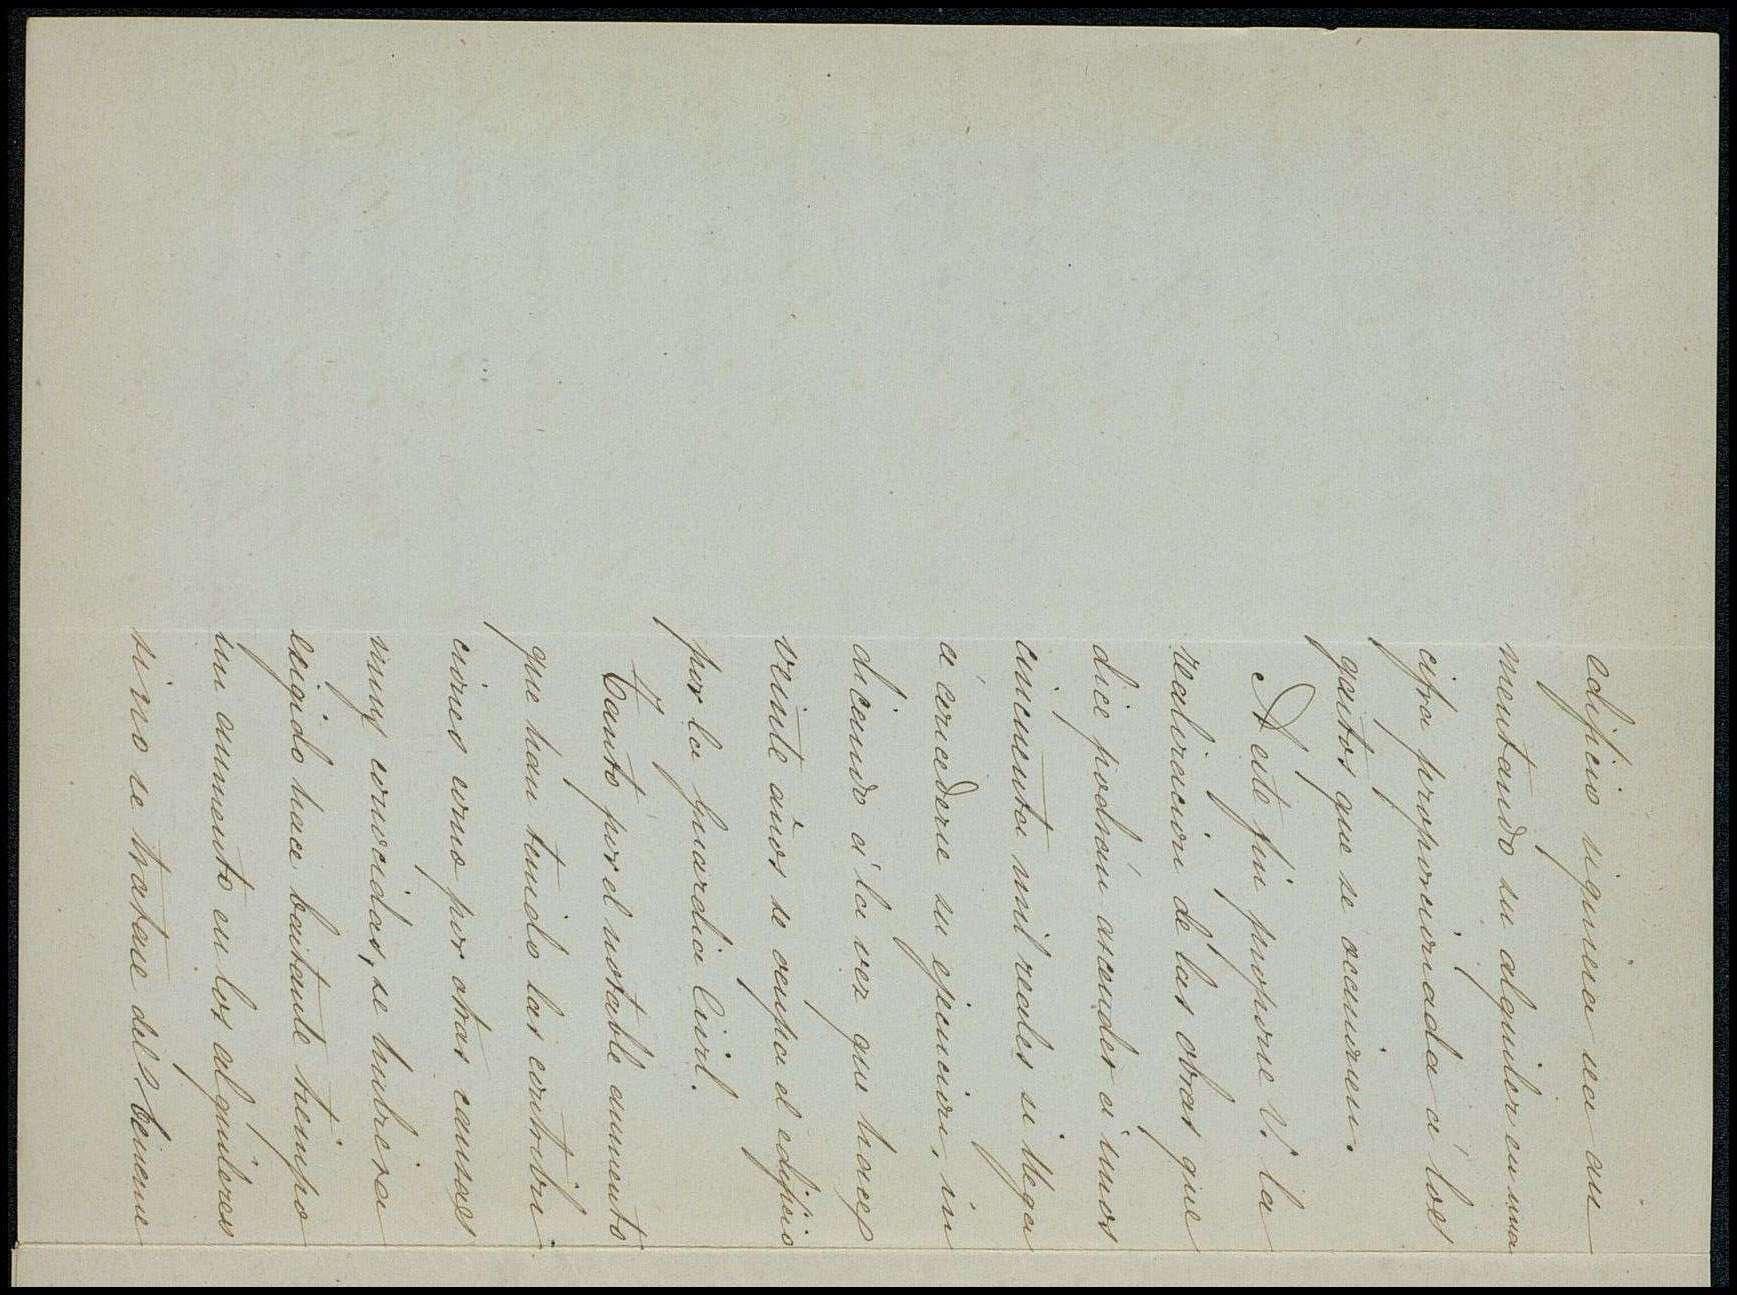 edificio siquiera sea au
mentando su alquiler en una
cifra proporcionada á los
gastos que se occurren.
A este fin propone V. la
realizacion de las obras que
dice podrán ascender á unos
cincuenta mil reales si llega
á concederse su ejecucion, in
dicando á la vez que hace
veinte años se ocupa el edificio
por la Guardia Civil.
Tanto por el notable aumento
que han tenido las contribu
ciones como por otras causas
muy conocidas, se hubiera
exigido hace bastante tiempo
un aumento en los alquileres
si no se tratase del